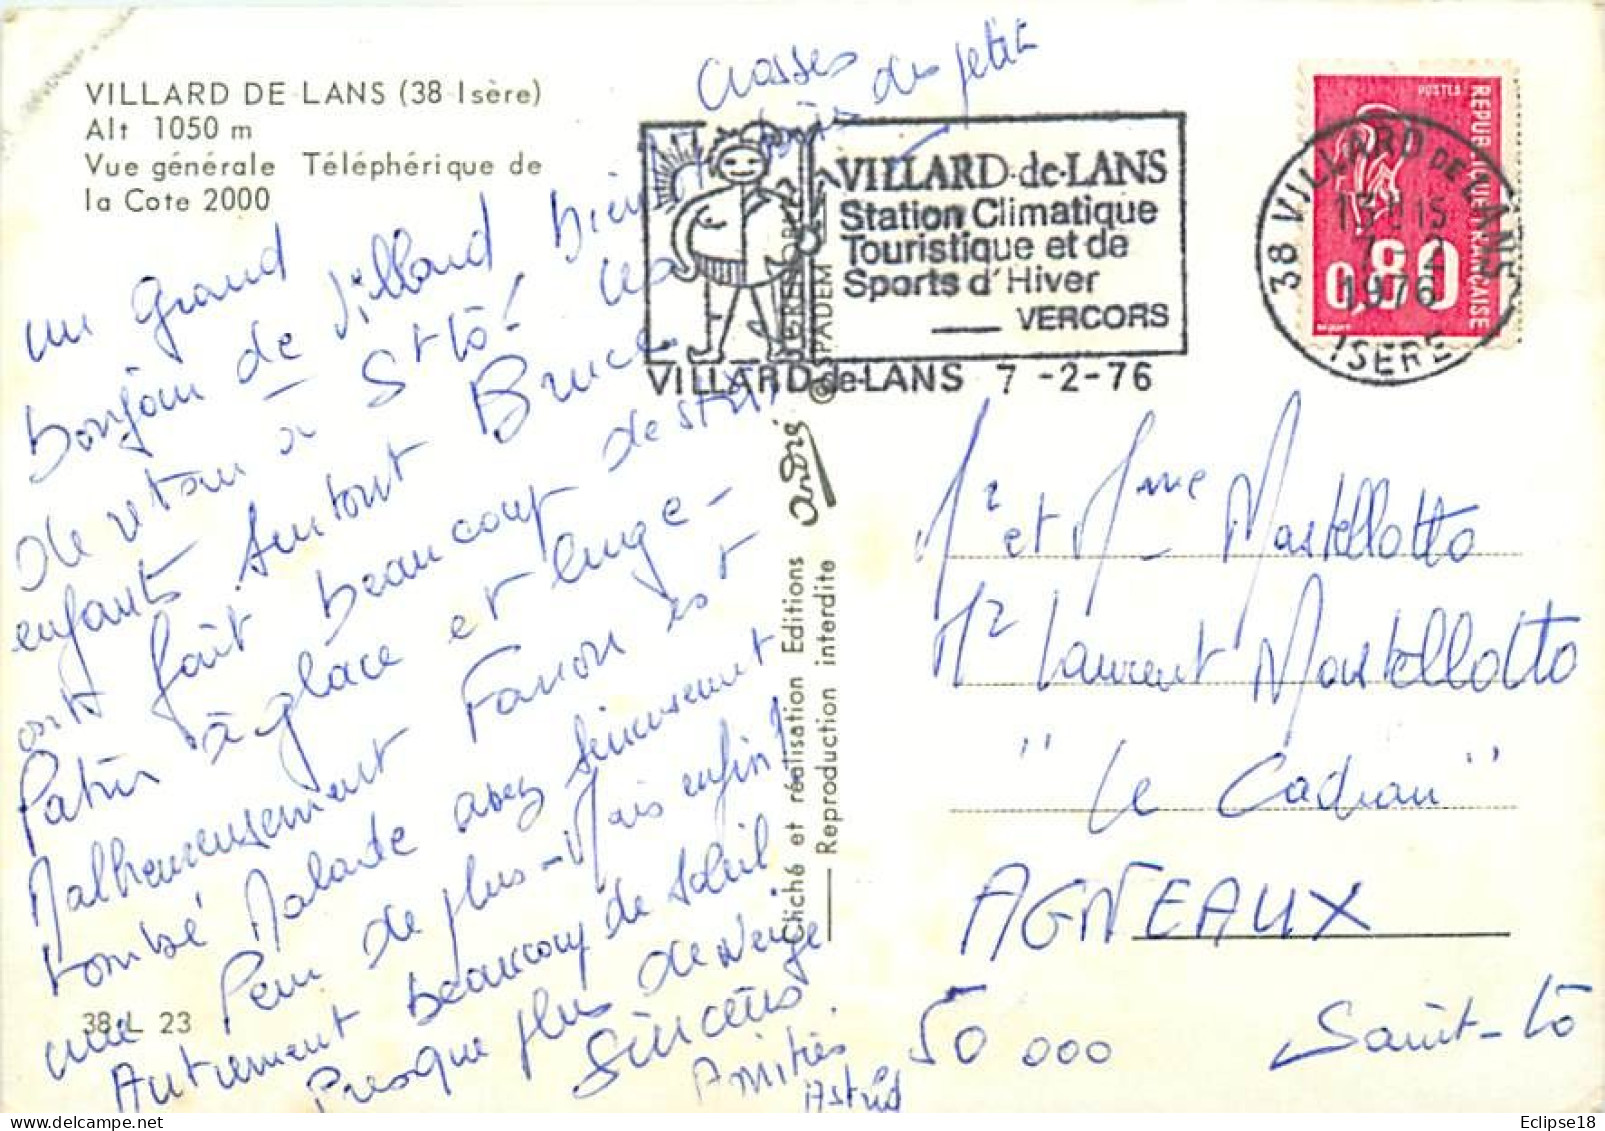 VILLARD DE LANS (38 Isère)
Alt 1050 m
Vue générale Téléphérique de
la Cote 2000
un grand
bonjour de Villard, bientôt
de retour à St Lô! Les
enfants surtout Bruce
ont fait beaucoup de
Patin à glace et luge -
Malheureusement Fanon est
tombé Malade assez sérieusement
une Peur de plus - Mais enfin!
Autrement beaucoup de soleil
Presque plus de Neige
Sincères
Amitiés.
Astrid
38 L 23
VILLARD-de-LANS
Station Climatique
Touristique et de
Sports d'Hiver
VERCORS
VILLARD-de-LANS 7 -2-76
38 VILLARD DE LANS
15H15
7 2
1976
ISERE
POSTES
REPUBLIQUE FRANÇAISE
0,80
© SPADEM
André
Cliché et réalisation Editions
Reproduction interdite
Mr et Mme Mastellotto
Mr Laurent Mastellotto
"Le Cadran"
AGNEAUX
50 000 Saint-Lô
Eclipse18